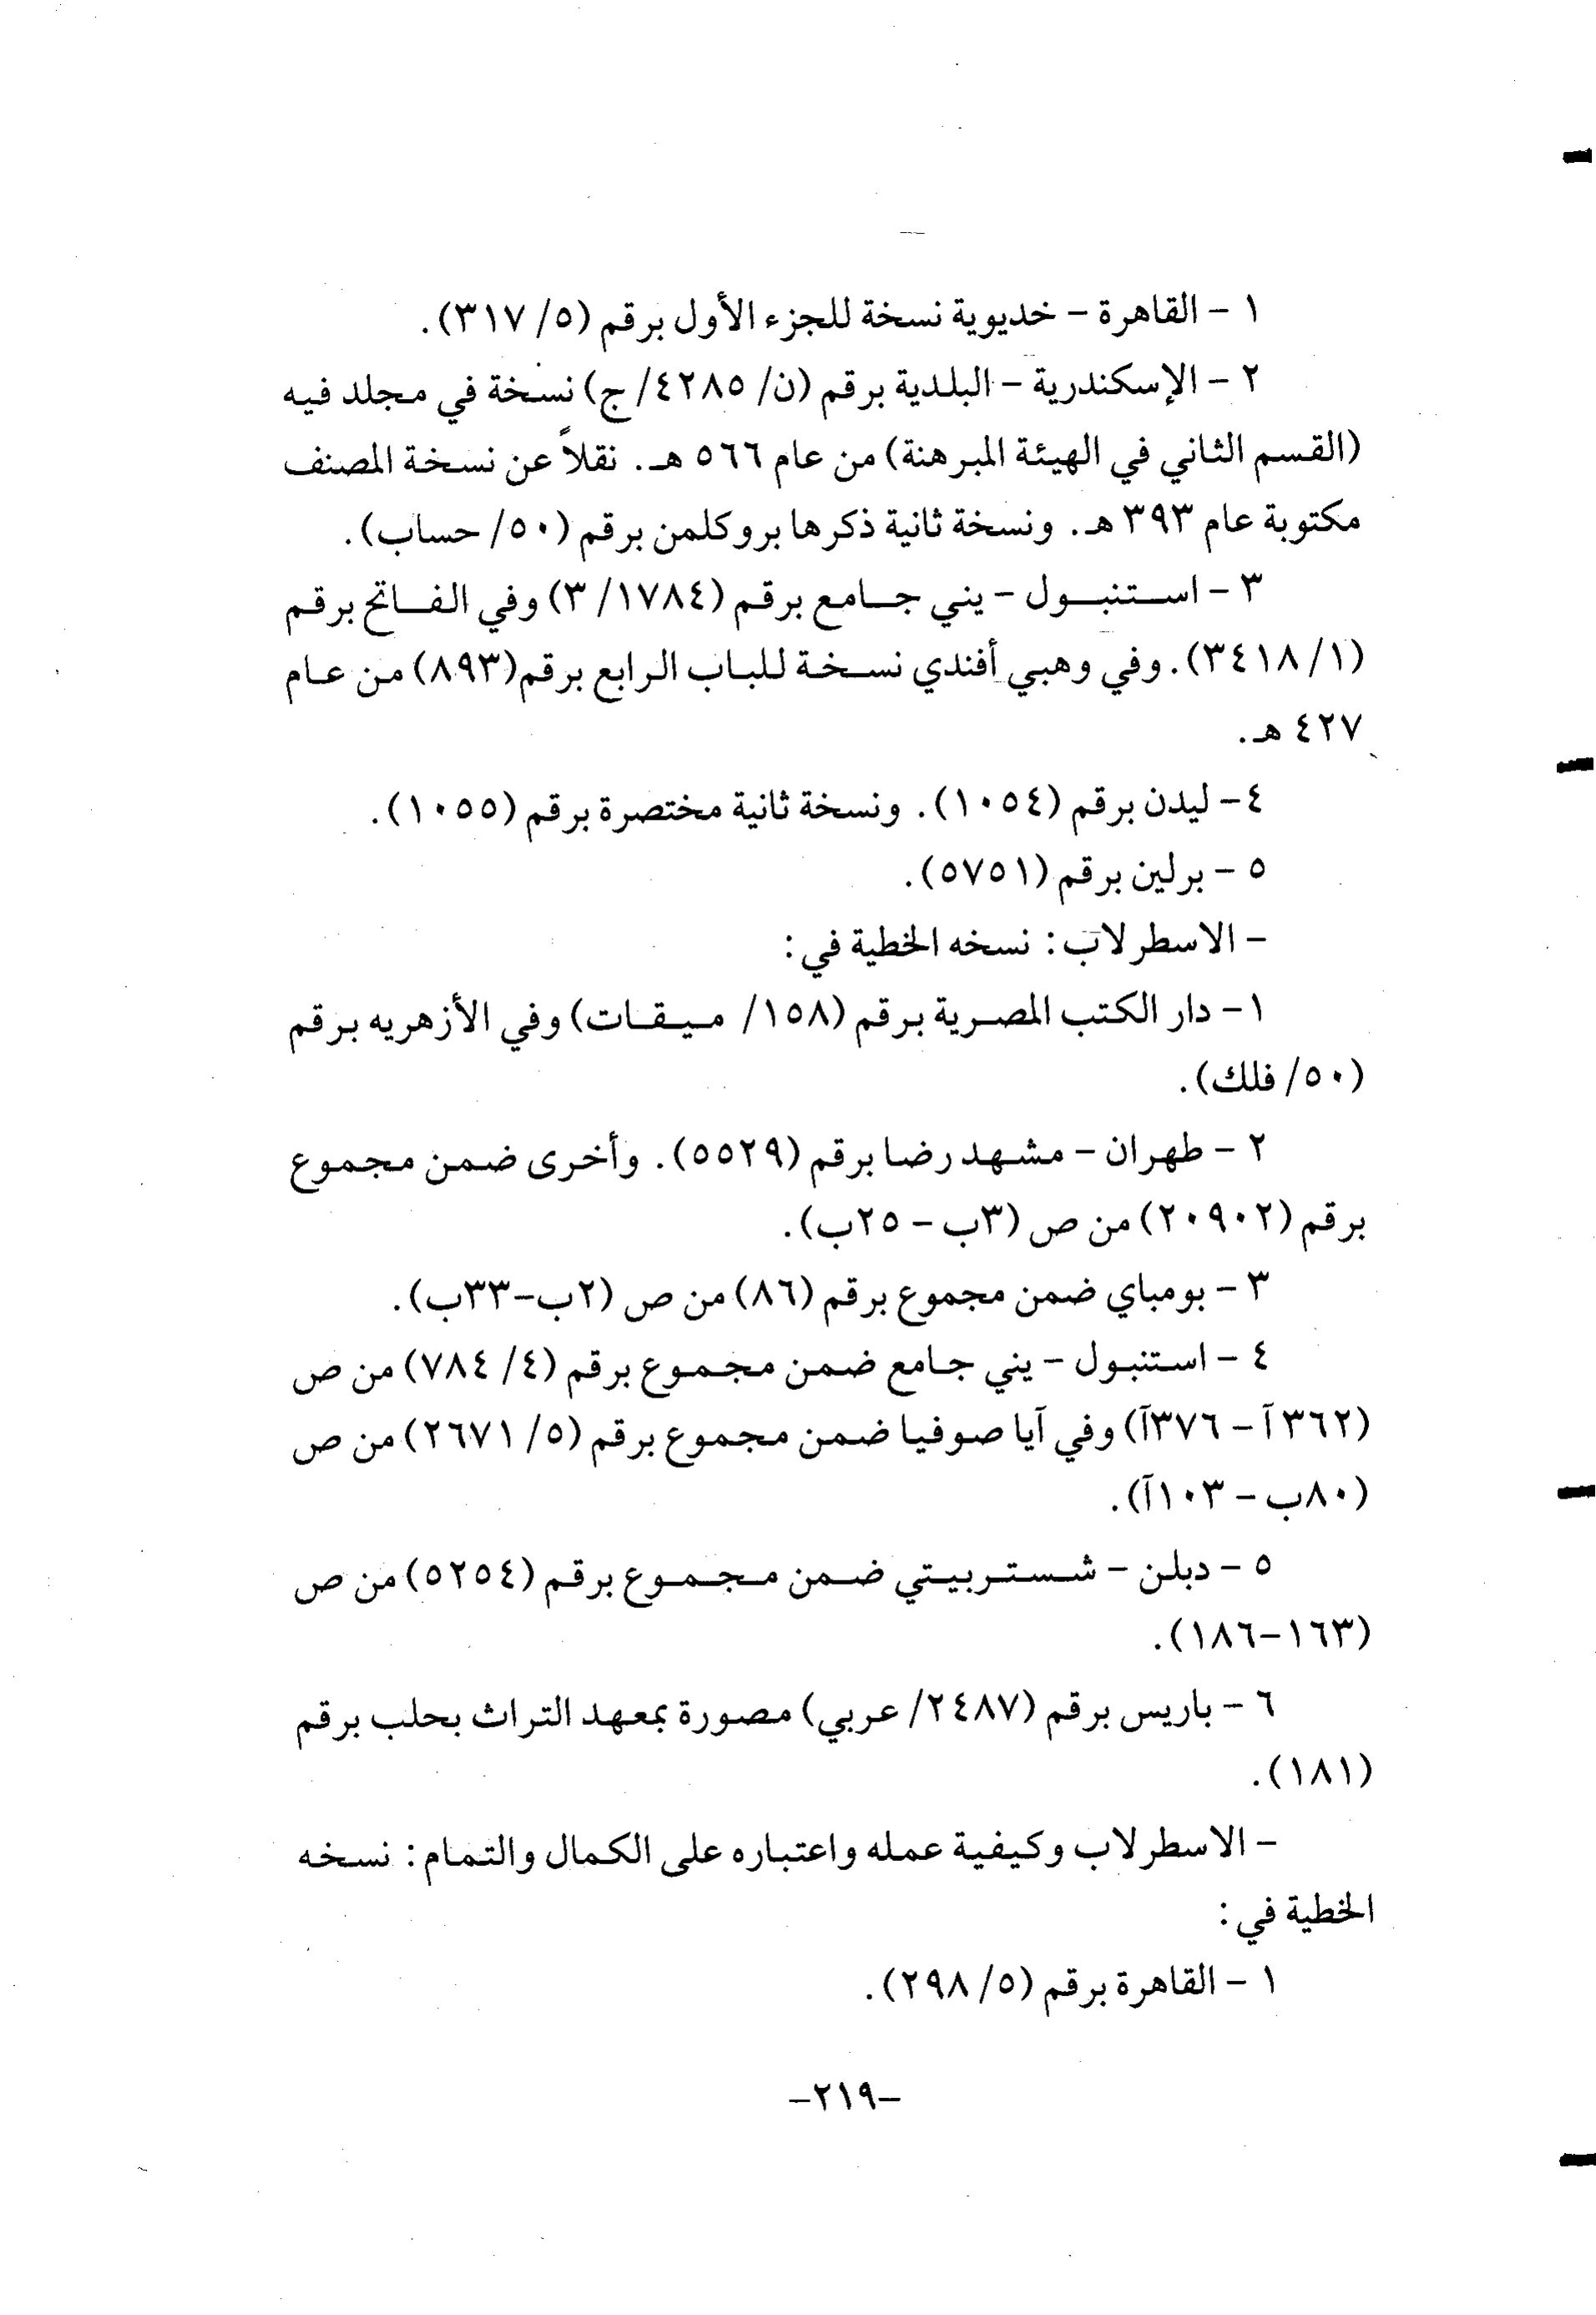 ١ - القاهرة - خديوية نسخة للجزء الأول برقم (٥/ ٣١٧).
٢ - الإسكندرية - البلدية برقم (ن/ ٤٢٨٥/ ج) نسخة في مجلد فيه
(القسم الثاني في الهيئة المبرهنة) من عام ٥٦٦ هـ. نقلاً عن نسخة المصنف
مكتوبة عام ٣٩٣ هـ. ونسخة ثانية ذكرها بروكلمن برقم (٥٠/ حساب).
٣ - استنبول - يني جامع برقم (١٧٨٤/ ٣) وفي الفاتح برقم
(١/ ٣٤١٨). وفي وهبي أفندي نسخة للباب الرابع برقم(٨٩٣) من عام
٤٢٧ هـ.
٤- ليدن برقم (١٠٥٤). ونسخة ثانية مختصرة برقم (١٠٥٥).
٥ - برلين برقم (٥٧٥١).
- الاسطرلاب: نسخه الخطية في:
١- دار الكتب المصرية برقم (١٥٨/ ميقات) وفي الأزهريه برقم
(٥٠/ فلك).
٢ - طهران - مشهد رضا برقم (٥٥٢٩). وأخرى ضمن مجموع
برقم (٢٠٩٠٢) من ص (٣ب - ٢٥ب).
٣ - بومباي ضمن مجموع برقم (٨٦) من ص (٢ب-٣٣ب).
٤ - استنبول - يني جامع ضمن مجموع برقم (٤/ ٧٨٤) من ص
(٣٦٢آ - ٣٧٦آ) وفي آيا صوفيا ضمن مجموع برقم (٥/ ٢٦٧١) من ص
(٨٠ب - ١٠٣آ).
٥ - دبلن - شستربيتي ضمن مجموع برقم (٥٢٥٤) من ص
(١٦٣-١٨٦).
٦ - باريس برقم (٢٤٨٧/ عربي) مصورة بمعهد التراث بحلب برقم
(١٨١).
- الاسطرلاب وكيفية عمله واعتباره على الكمال والتمام: نسخه
الخطية في:
١ - القاهرة برقم (٥/ ٢٩٨).
-٢١٩-